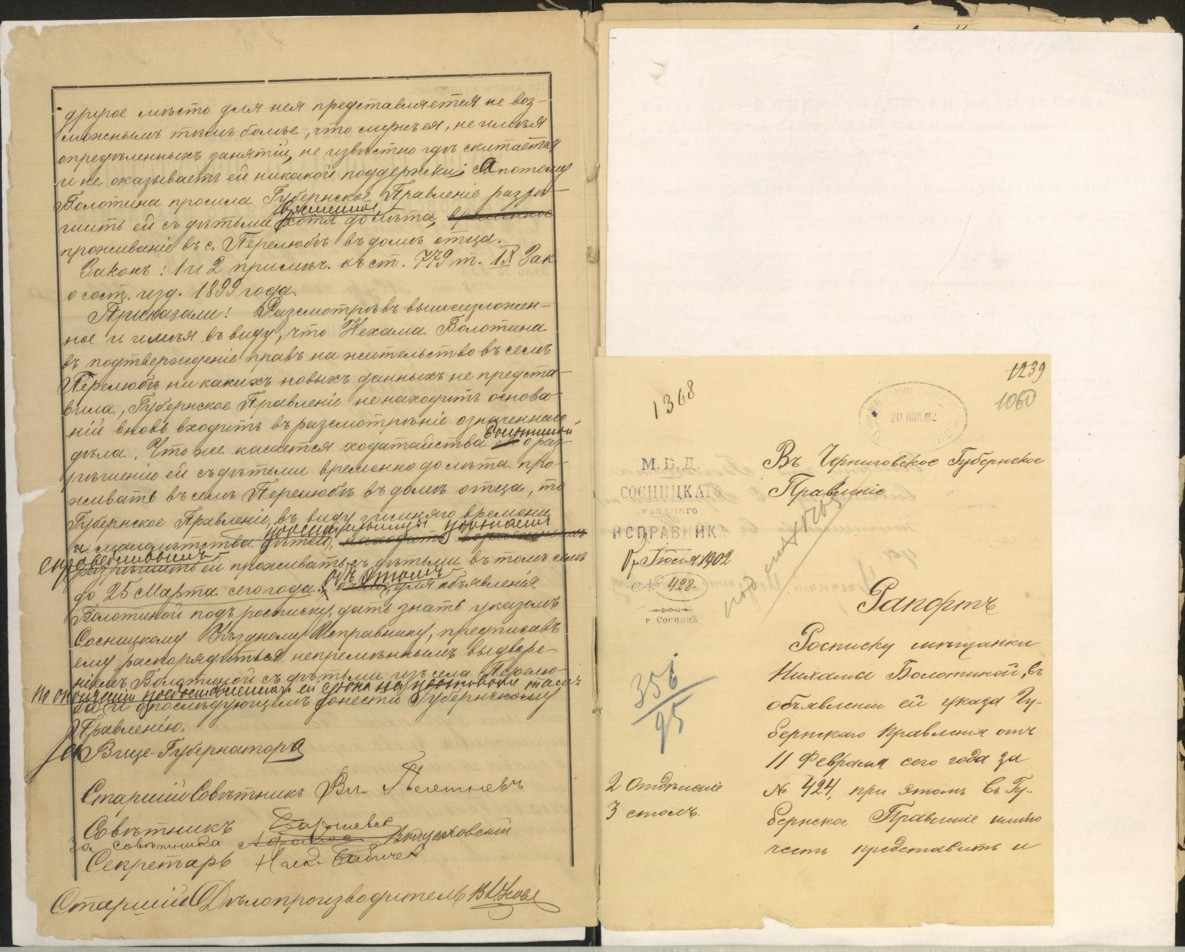 другое мѣсто для нея представляется не воз-
можнымъ тѣмъ болѣе, что мужъ ея, не имѣя
опредѣленныхъ занятій, не извѣстно гдѣ скитается
и не оказываетъ ей никакой поддержки; а потому
Болотина просила Губернское Правленіе разрѣ-
шить ей съ дѣтьми хотя до лѣта, временное
проживаніе въ с. Перелюбѣ въ домѣ отца.
Законъ: 1 и 2 примѣч. къ ст. 779 т. IX Зак
о сост. изд. 1899 года.
Приказали: Разсмотрѣвъ вышеизложен-
ное и имѣя въ виду, что Нехама Болотина
въ подтвержденіе правъ на жительство въ селѣ
Перелюбѣ никакихъ новыхъ данныхъ не предста-
вила, Губернское Правленіе не находитъ основа-
ній вновь входить въ разсмотрѣніе означеннаго
дѣла. Что же касается ходатайства о раз-
рѣшеніи ей съ дѣтьми временно до лѣта про-
живать въ селѣ Перелюбѣ въ домѣ отца, то
Губернское Правленіе, въ виду зимняго времени
и малолѣтства дѣтей,
справедливымъ
разрѣшить ей проживать съ дѣтьми въ томъ селѣ
до 25 Марта сего года, о чемъ, для объявленія
Болотиной подъ росписку, дать знать указомъ
Сосницкому Уѣздному Исправнику, предписавъ
ему распорядиться непремѣннымъ выдворе-
ніемъ Болотиной съ дѣтьми изъ села Перелю-
ба и о послѣдующемъ донести Губернскому
Правленію.
За Вице-Губернатора
Старшій Совѣтникъ Вл.
Совѣтникъ
За совѣтника
Секретарь
Старшій Дѣлопроизводитель
1239
1060
1368
20 ІЮЛ 02
М. В. Д.
СОСНИЦКАГО
УѢЗДНАГО
ИСПРАВНИК
Іюля 1902
№ 428
г. Сосница
Въ Черниговское Губернское
Правленіе
356
95
2 Отдѣленіе
3 столъ.
Рапортъ
Росписку мѣщанки
Нихамы Болотиной, въ
объявленіи ей указа Гу-
бернскаго Правленія отъ
11 Февраля сего года за
№ 424, при этомъ въ Гу-
бернское Правленіе имѣю
честь представить и